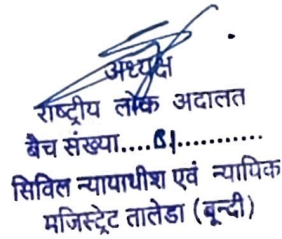 अध्यक्ष
राष्ट्रीय लोक अदालत
बैच संख्या....B1............
सिविल न्यायाधीश एवं न्यायिक
मजिस्ट्रेट तालेडा (बून्दी)